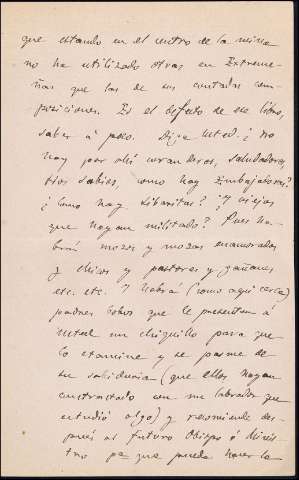 que estando en el centro de la mina
no ha utilizado otras en Extreme-
ñas que las de sus contadas com-
posiciones. Es el defecto de ese libro,
saber á poco. Diga usted: ¿no
hay por ahí curanderos, saludadores
tíos sabios, como hay Embajadores?
¿Cómo hay Libaritas? ¿Y viejos
que hayan militado? Pues ha-
brá mozos y mozas enamorados
y chicos y pastores y gañanes
etc. etc. Y habrá (como aquí cerca)
padres bobos que le presenten á
usted un chiquillo para que
lo examine y se pasme de
su sabiduría (que ellos hayan
contractado con un labrador que
estudió algo) y recomiende des-
pués al futuro Obispo ó Minis-
tro pa que pueda hacer la